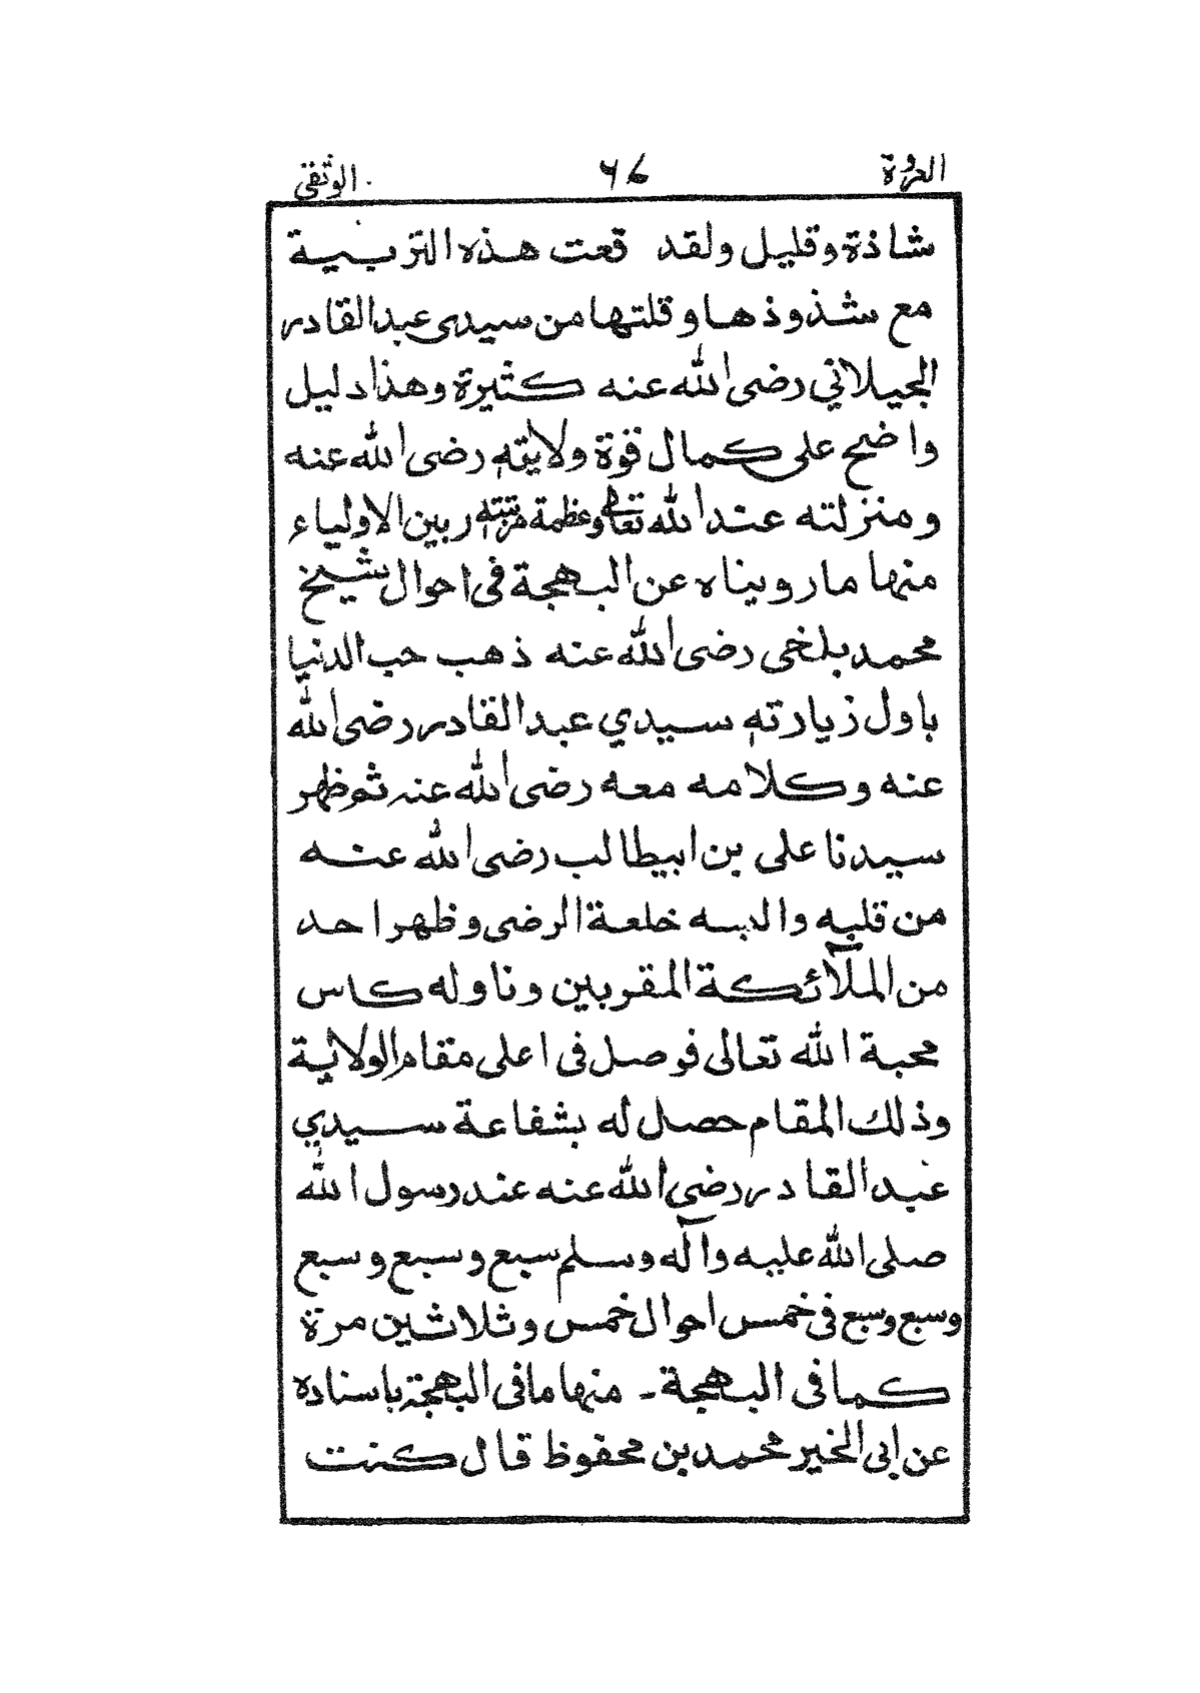 العروة ٦٧ الوثقى
شاذة وقليل ولقد قعت هذه التربية
مع شذوذها وقلتها من سيدى عبد القادر
الجيلاني رضى الله عنه كثيرة وهذا دليل
واضح على كمال قوة ولايته رضى الله عنه
ومنزلته عند الله تعالى وعظمة مرتبته بين الاولياء
منها ما رويناه عن البهجة فى احوال شيخ
محمد بلخى رضى الله عنه ذهب حب الدنيا
باول زيارته سيدي عبد القادر رضى الله
عنه وكلامه معه رضى الله عنه ثم ظهر
سيدنا على بن ابيطالب رضى الله عنه
من قلبه والبسه خلعة الرضى وظهر احد
من الملآئكة المقربين وناوله كاس
محبة الله تعالى فوصل فى اعلى مقام الولاية
وذلك المقام حصل له بشفاعة سيدي
عبد القادر رضى الله عنه عند رسول الله
صلى الله عليه وآله وسلم سبع وسبع وسبع
وسبع وسبع فى خمس احوال خمس وثلاثين مرة
كما فى البهجة ـ منها ما فى البهجة باسناده
عن ابى الخير محمد بن محفوظ قال كنت